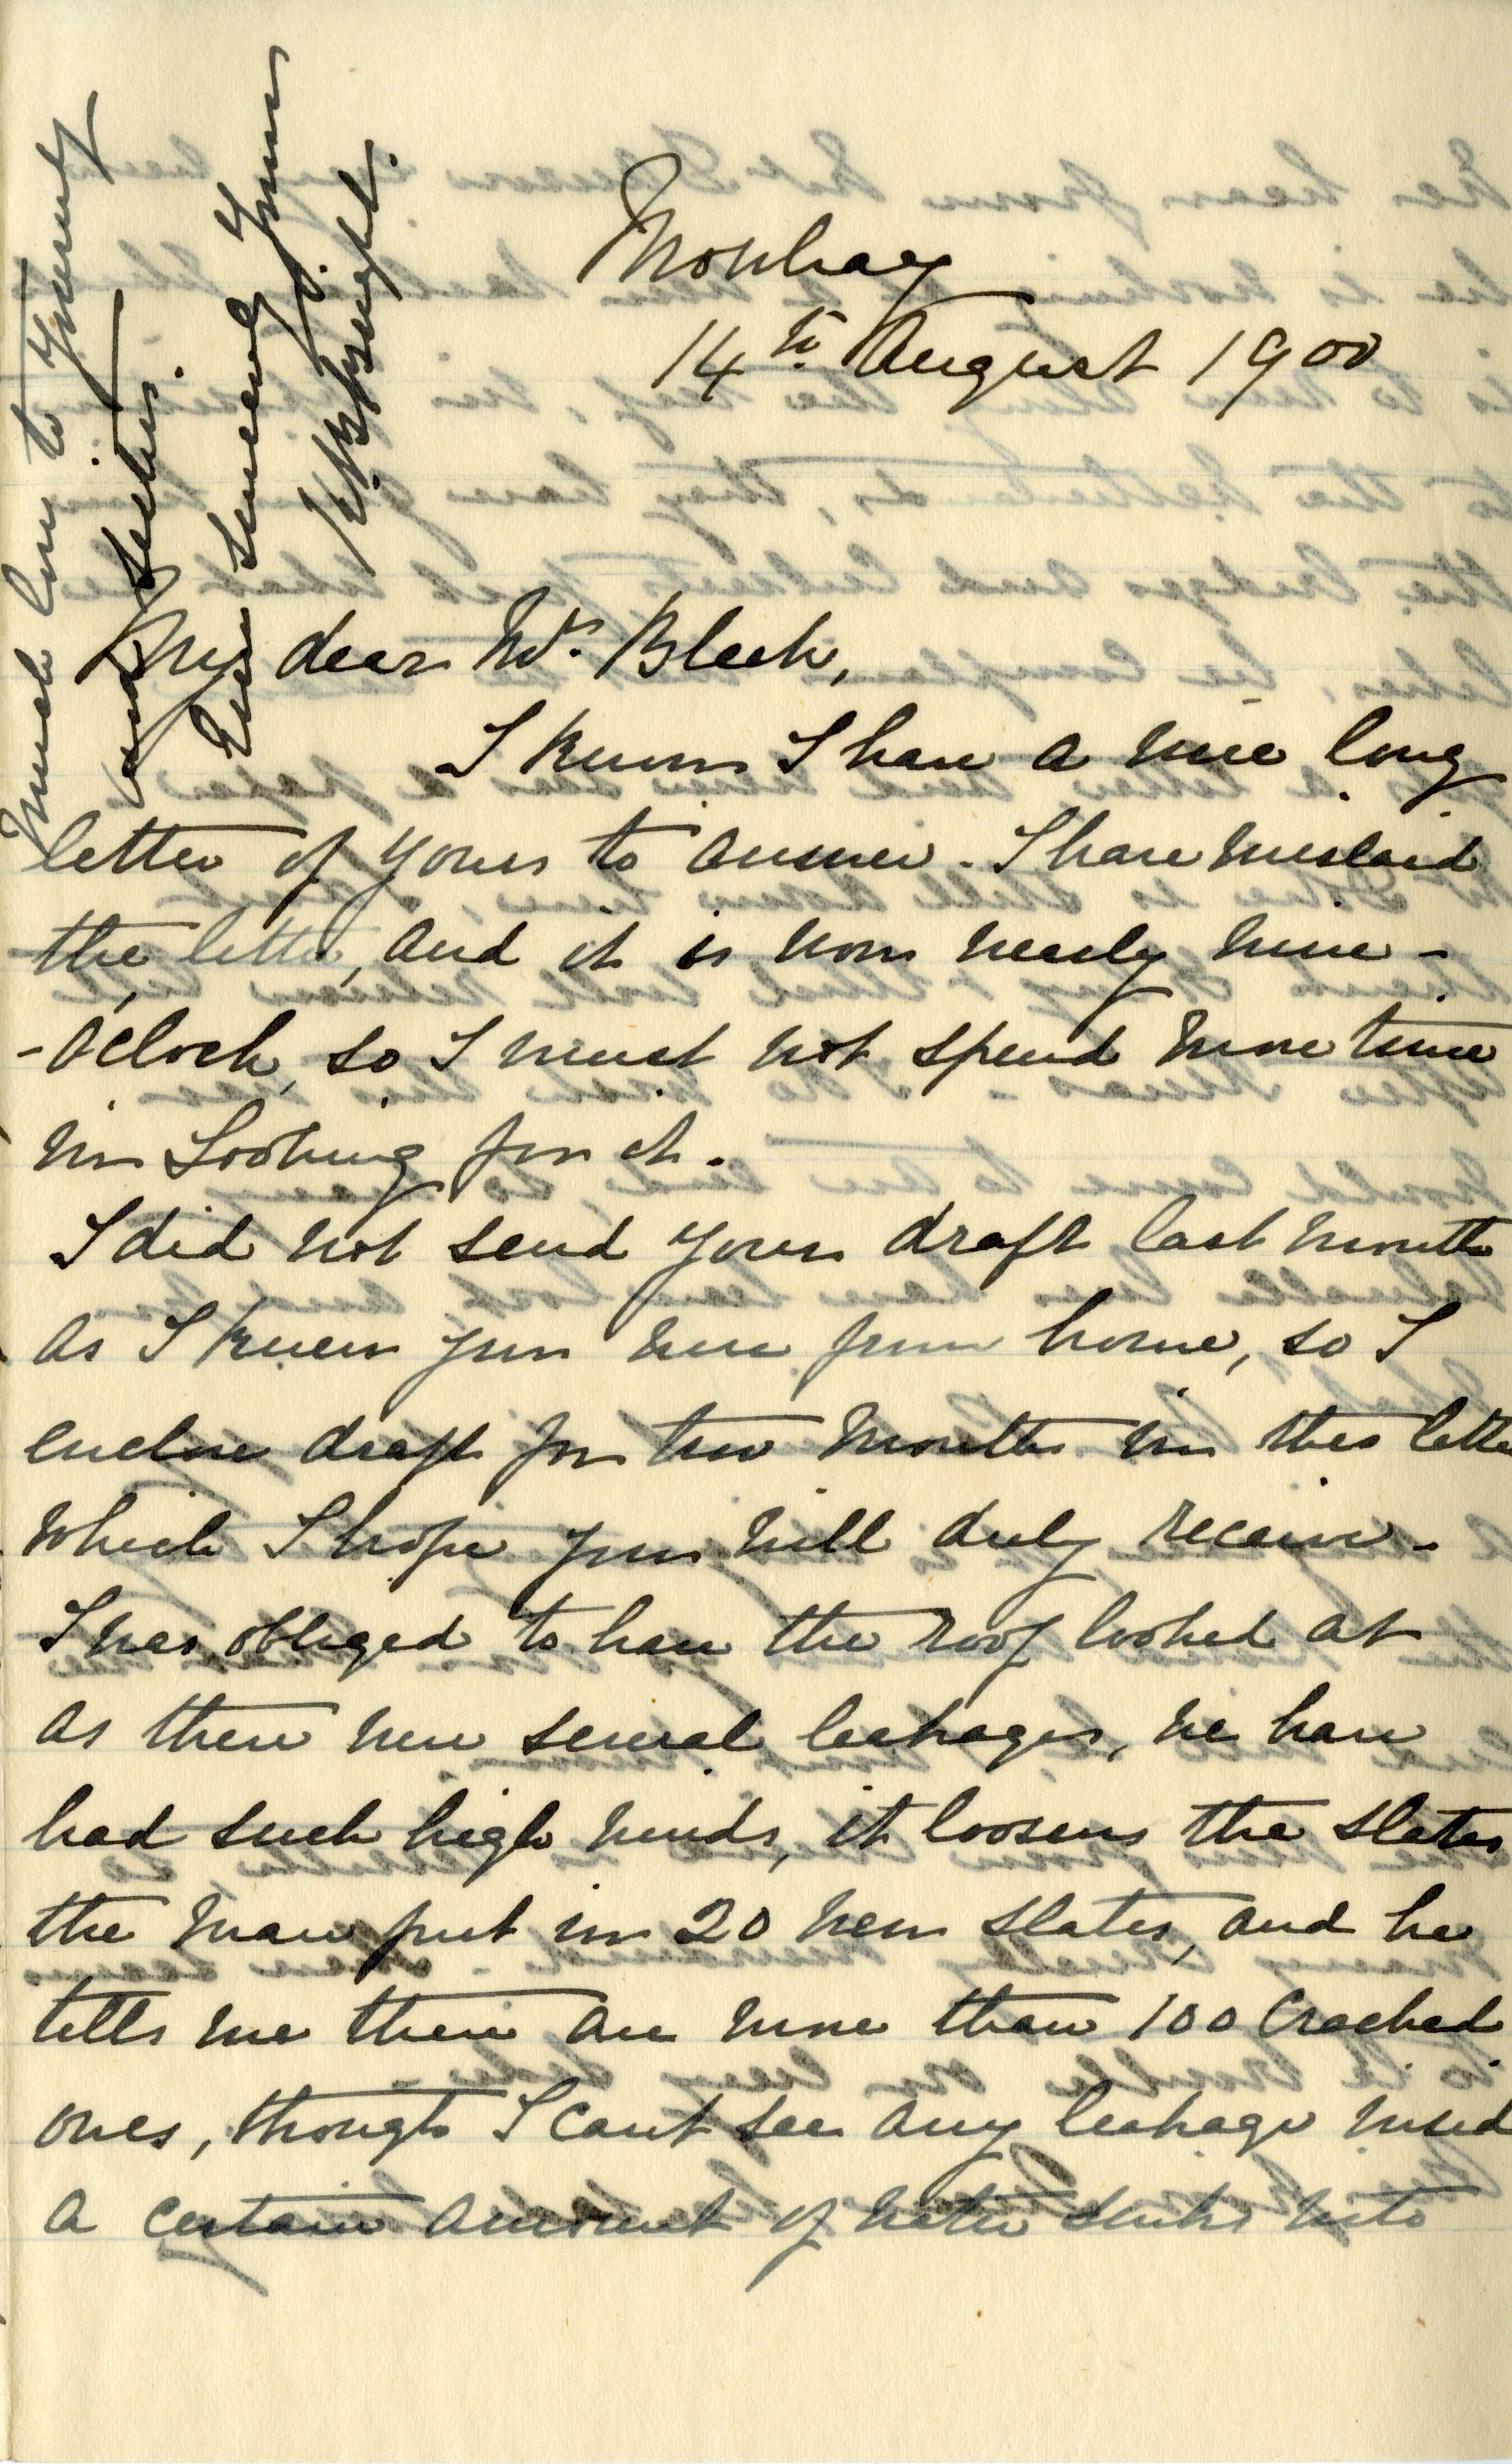 Mowbray
14th August 1900
My dear Mrs. Bleek,
I know I have a nice long
letter of yours to answer - I have mislaid
the letter, and it is now nearly nine -
- o'clock, so I must not spend more time
in looking for it.
I did not send your draft last month
as I knew you were from home, so I
enclose draft for two months in this letter
which I hope you will duly receive -
I was obliged to have the roof looked at
as there were several leakages, we have
had such high winds, it loosens the slates
the man put in 20 new slates, and he
tells me there are more than 100 cracked
ones, though I cant see any leakage insid
a certain amount of water sinks into
Much love to yourself
and sisters.
Ever sincerely yours